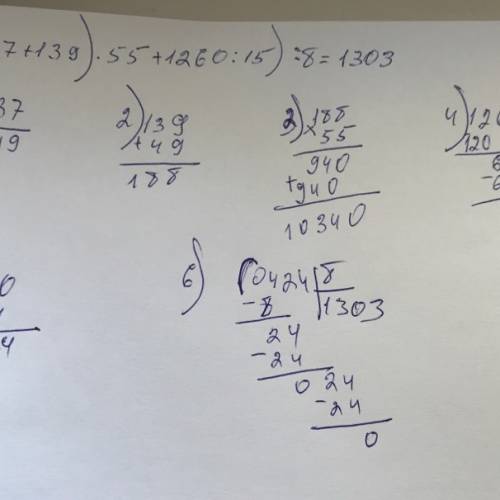 7+139)·55+1260:15):8=1303
37
19
2) 139
+49
188
3) 188
55
940
+940
10340
4) 126
120
6
-6
0
4
6) 10424 8
-8 1303
24
-24
0 24
-24
0